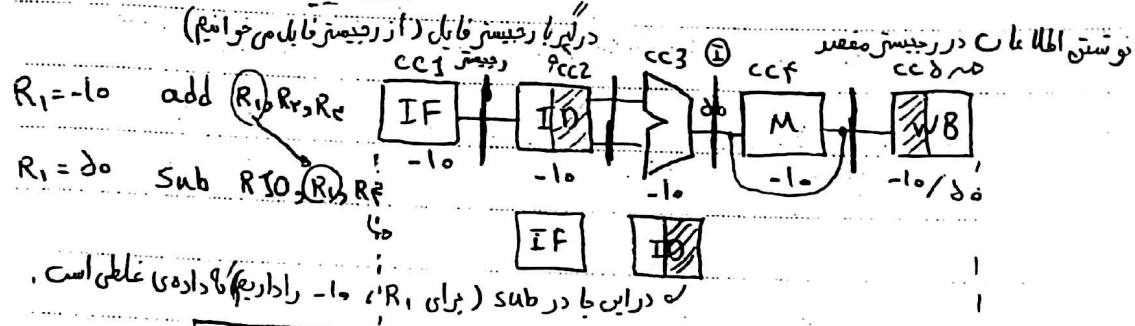 درگیر با رجیستر فایل (از رجیستر فایل می‌خوانیم)
نوشتن اطلاعات در رجیستر مقصد
cc1 رجیستر cc2 cc3 ① cc۴ cc۵
R₁=-۱۰ add R₁,R₂,R₃ IF ID ۵۰ M WB
-۱۰ -۱۰ -۱۰ -۱۰ -۱۰/۵۰
R₁=۵۰ sub R10,R₁,R۳
IF ID
در این جا در sub (برای R₁، -۱۰ را داریم) داده‌ی غلطی است.